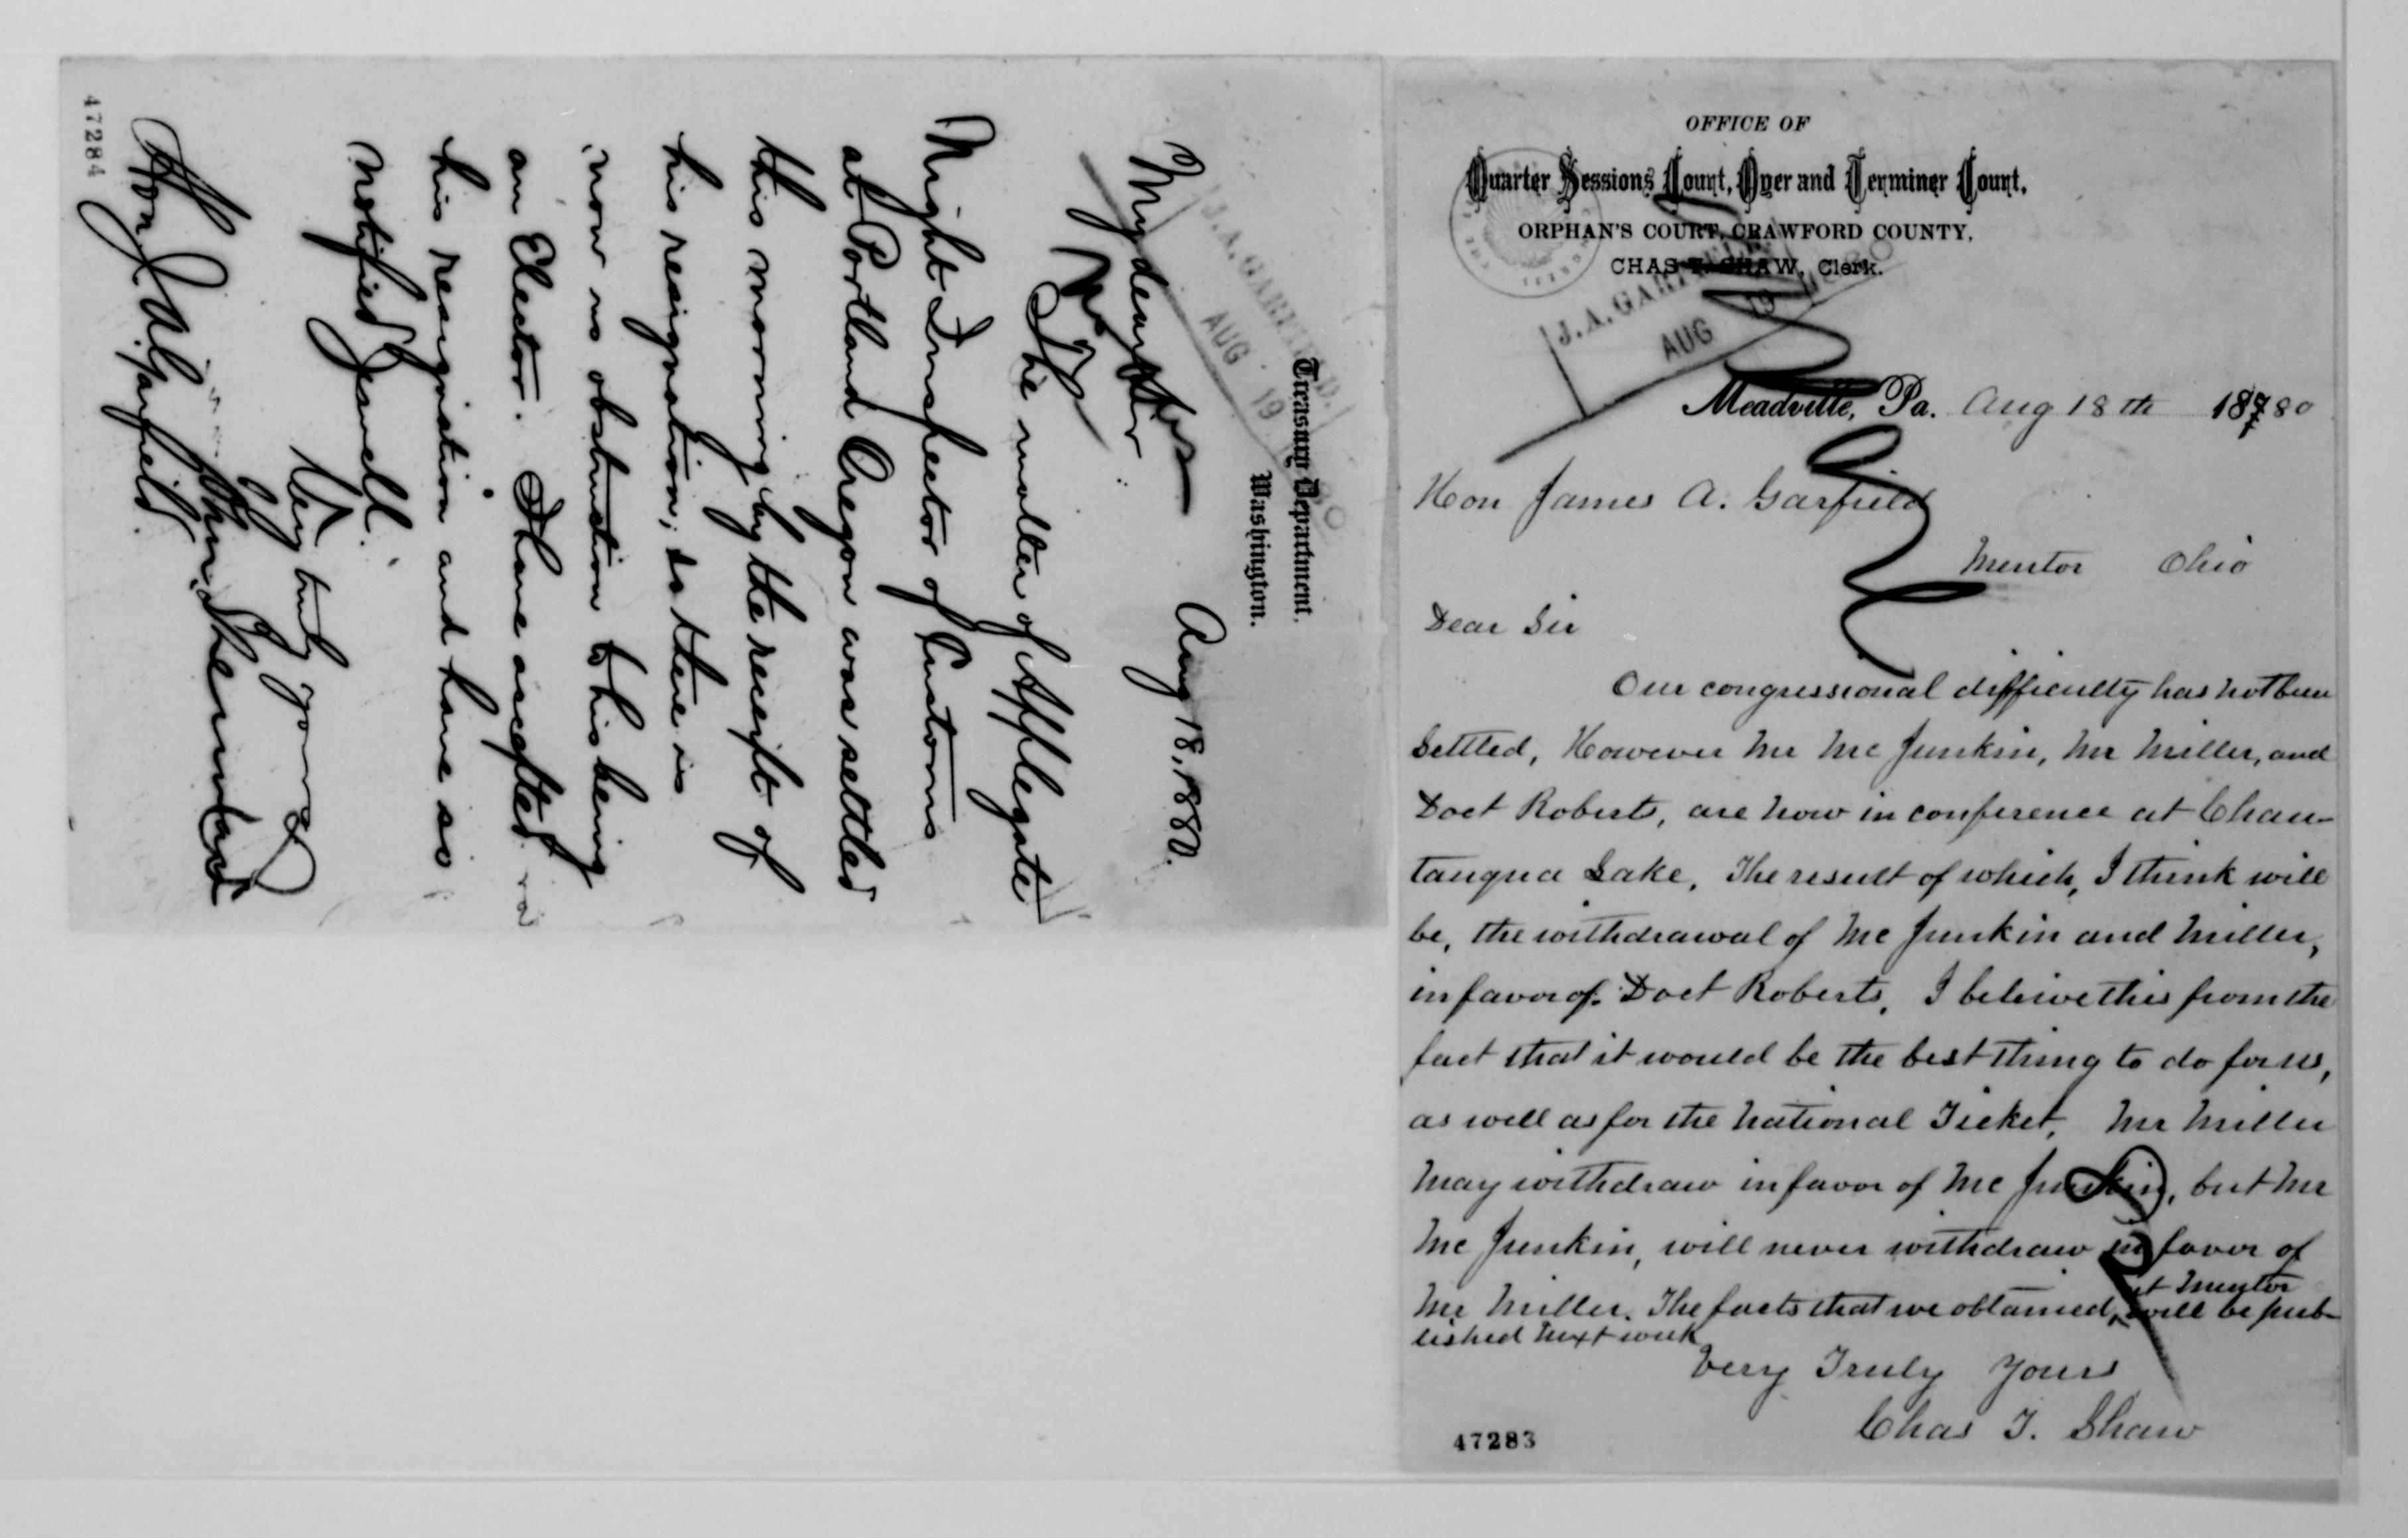 Treasury Department.
Washington.
Aug 18, 1880.
J. A. GARFIELD.
AUG 19 1880
My dear Sir:
The matter of Applegate
Night Inspector of Customs
at Portland Oregon was settled
this morning by the receipt of
his resignation; so there is
now no obstruction to his being
an Elector. I have accepted
his resignation and have so
notified Jewell.
Very truly yours
John Sherman
Hon J. A. Garfield.
47284
OFFICE OF
Quarter Sessions Court, Oyer and Terminer Court,
ORPHAN'S COURT, CRAWFORD COUNTY,
CHAS T. SHAW, Clerk.
J. A. GARFIELD.
AUG 19 1880
Meadville, Pa. Aug 18th 18780
Hon James A. Garfield
Mentor Ohio
Dear Sir
Our congressional difficulty has not been
Settled, However Mr Mc Junkin, Mr Miller, and
Doct Roberts, are now in conference at Chau-
tauqua Lake, The result of which, I think will
be, the withdrawal of Mc Junkin and Miller,
in favor of Doct Roberts, I believe this from the
fact that it would be the best thing to do for us,
as well as for the National Ticket, Mr Miller
May withdraw in favor of Mc Junkin, but Mr
Mc Junkin, will never withdraw in favor of
at Mentor
Mr Miller. The facts that we obtained, will be pub-
lished Next week
Very Truly Yours
Chas T. Shaw
47283